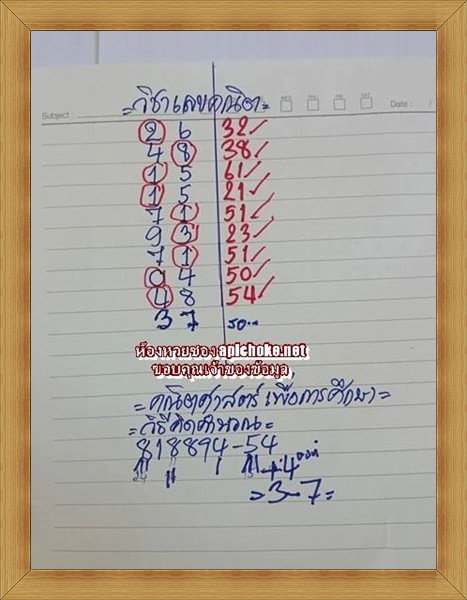 =วิชาเลขคณิต=
Subject :
Date : /
2 6 32✓
4 8 38✓
1 5 61✓
1 5 21✓
7 1 51✓
9 3 23✓
7 1 51✓
0 4 50✓
4 8 54✓
3 7 50--
ห้องหวยซองapichoke.net
ขอบคุณเจ้าของข้อมูล
=คณิตศาสตร์เพื่อการศึกษา=
=วิธีคิดคำนวณ=
818894-54
++4
=3-7=